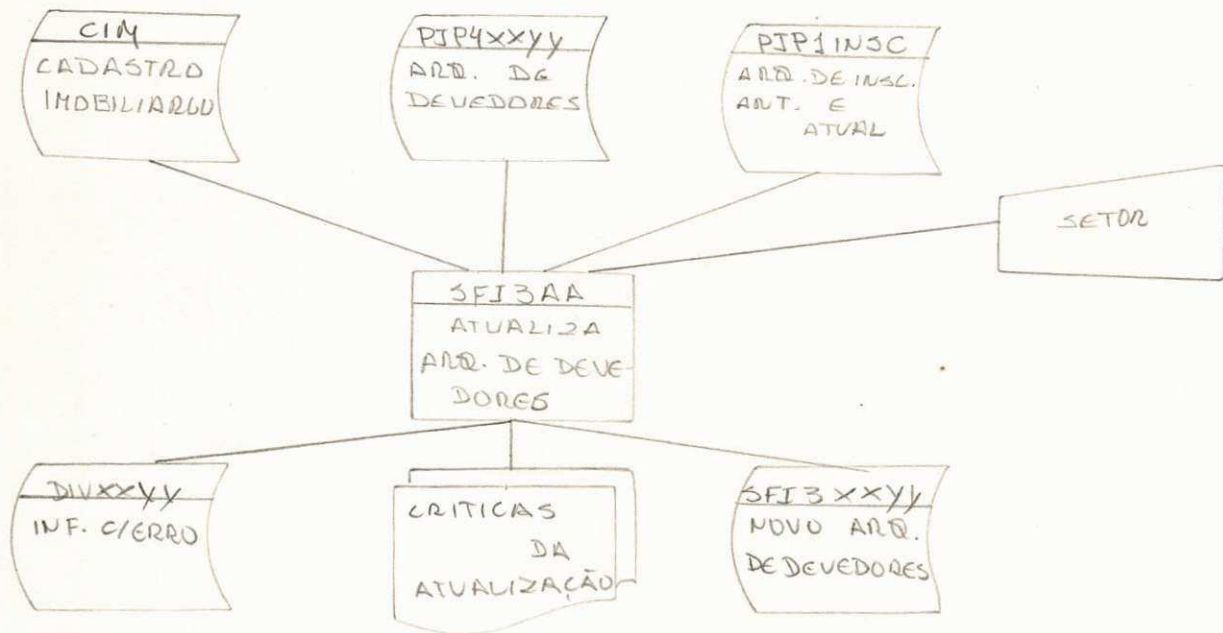 CIM
CADASTRO
IMOBILIARIO
PJP4XXYY
ARQ. DE
DEVEDORES
PJP1INSC
ARQ. DE INSC.
ANT. E
ATUAL
SETOR
SFI3AA
ATUALIZA
ARQ. DE DEVE-
DORES
DIVXXYY
INF. C/ERRO
CRITICAS
DA
ATUALIZAÇÃO
SFI3XXYY
NOVO ARQ.
DE DEVEDORES